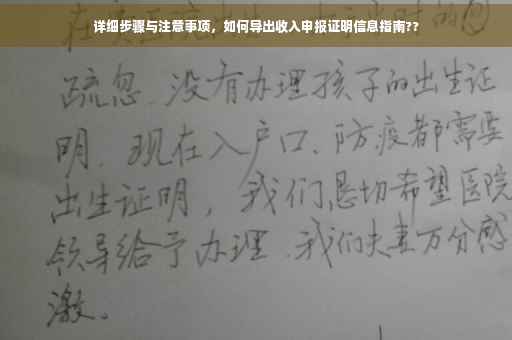 详细步骤与注意事项，如何导出收入申报证明信息指南??
疏忽、没有办理孩子的出生证
明、现在入户口、防疫都需要
出生证明，我们恳切希望医院
领导给予办理、我们夫妻万分感
激。